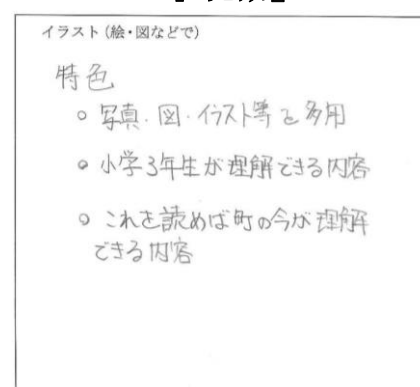 イラスト（絵・図などで）
特色
○ 写真・図・イラスト等を多用
○ 小学3年生が理解できる内容
○ これを読めば町の今が理解
できる内容